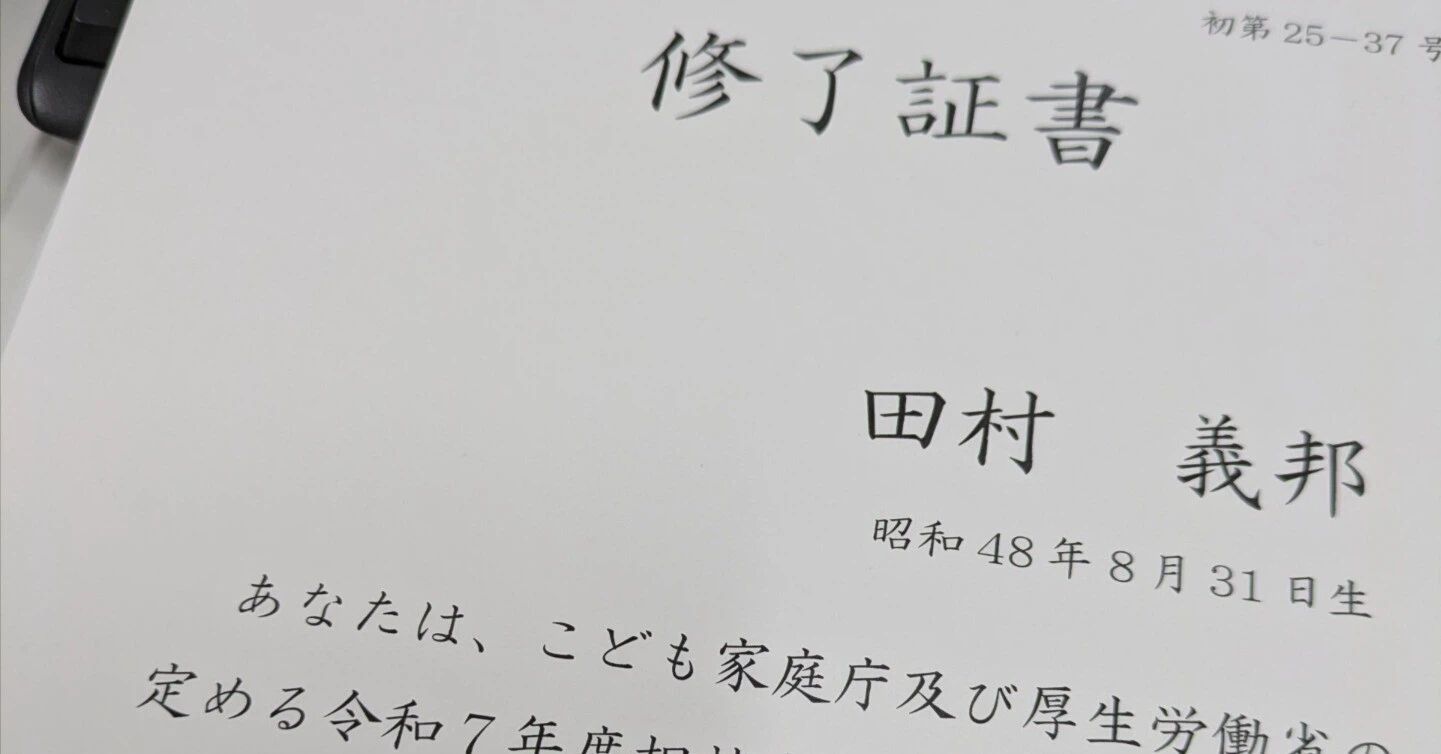 初第 25－37 号
修了証書
田村　義邦
昭和 48 年 8 月 31 日生
あなたは、こども家庭庁及び厚生労働省の
定める令和７年度相